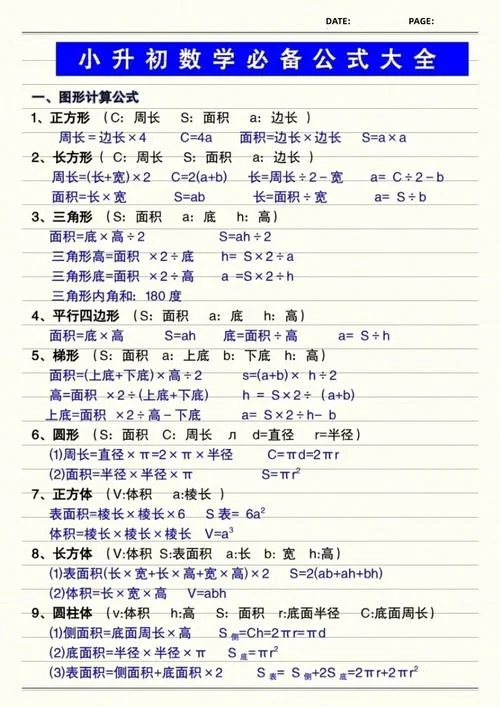 DATE: PAGE:
小升初数学必备公式大全
一、图形计算公式
1、正方形（C：周长 S：面积 a：边长）
周长＝边长×4 C=4a 面积=边长×边长 S=a×a
2、长方形（C：周长 S：面积 a：边长）
周长=(长+宽)×2 C=2(a+b) 长=周长÷2－宽 a= C÷2－b
面积=长×宽 S=ab 长=面积÷宽 a= S÷b
3、三角形（S：面积 a：底 h：高）
面积=底×高÷2 S=ah÷2
三角形高=面积 ×2÷底 h= S×2÷a
三角形底=面积 ×2÷高 a =S×2÷h
三角形内角和：180度
4、平行四边形（S：面积 a：底 h：高）
面积=底×高 S=ah 底=面积÷高 a= S÷h
5、梯形（S：面积 a：上底 b：下底 h：高）
面积=(上底+下底)×高÷2 s=(a+b)× h÷2
高=面积 ×2÷(上底+下底) h = S×2÷(a+b)
上底=面积 ×2÷高－下底 a= S×2÷h－b
6、圆形（S：面积 C：周长 л d=直径 r=半径）
(1)周长=直径×π=2×π×半径 C=πd=2πr
(2)面积=半径×半径×π S=πr²
7、正方体（V:体积 a:棱长）
表面积=棱长×棱长×6 S表= 6a²
体积=棱长×棱长×棱长 V=a³
8、长方体（V:体积 S:表面积 a:长 b：宽 h:高）
(1)表面积(长×宽+长×高+宽×高)×2 S=2(ab+ah+bh)
(2)体积=长×宽×高 V=abh
9、圆柱体（v:体积 h:高 S：面积 r:底面半径 C:底面周长）
(1)侧面积=底面周长×高 S侧=Ch=2πr=πd
(2)底面积=半径×半径×π S底=πr²
(3)表面积=侧面积+底面积×2 S表= S侧+2S底=2πr+2πr²